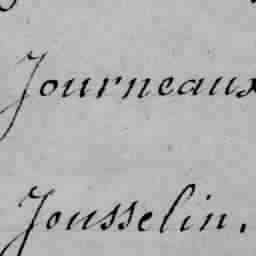 Journeaux
Jousselin.